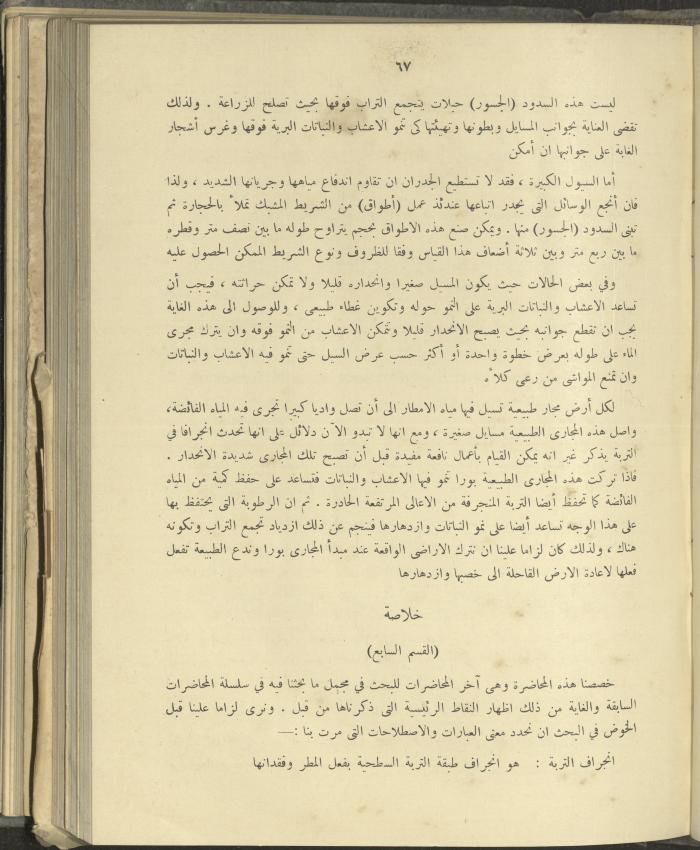 ٦٧
ليست هذه السدود (الجسور) حبلات يتجمع التراب فوقها بحيث تصلح للزراعة . ولذلك
تقضى العناية بجوانب المسايل وبطونها وتهيئتها كى تنمو الاعشاب والنباتات البرية فوقها وغرس أشجار
الغابة على جوانبها ان أمكن
أما السيول الكبيرة ، فقد لا تستطيع الجدران ان تقاوم اندفاع مياهها وجريانها الشديد ، ولذا
فان أنجع الوسائل التى يجدر اتباعها عندئذ عمل (أطواق) من الشريط المشبك تملأ بالحجارة ثم
تبنى السدود (الجسور) منها . ويمكن صنع هذه الاطواق بحجم يتراوح طوله ما بين نصف متر وقطره
ما بين ربع متر وبين ثلاثة أضعاف هذا القياس وفقا للظروف ونوع الشريط الممكن الحصول عليه
وفي بعض الحالات حيث يكون المسيل صغيرا وانحداره قليلا ولا تمكن حراثته ، فيجب أن
تساعد الاعشاب والنباتات البرية على النمو حوله وتكوين غطاء طبيعى ، وللوصول الى هذه الغاية
يجب ان تقطع جوانبه بحيث يصبح الانحدار قليلا وتتمكن الاعشاب من النمو فوقه وان يترك مجرى
الماء على طوله بعرض خطوة واحدة أو أكثر حسب عرض السيل حتى تنمو فيه الاعشاب والنباتات
وان تمنع المواشى من رعى كلأه
لكل أرض مجار طبيعية تسيل فيها مياه الامطار الى أن تصل واديا كبيرا تجرى فيه المياه الفائضة،
واصل هذه المجارى الطبيعية مسايل صغيرة ، ومع انها لا تبدو الآن دلائل على انها تحدث انجرافا في
التربة يذكر غير انه يمكن القيام بأعمال نافعة مفيدة قبل أن تصبح تلك المجارى شديدة الانحدار .
فاذا تركت هذه المجارى الطبيعية بورا تنمو فيها الاعشاب والنباتات فتساعد على حفظ كمية من المياه
الفائضة كما تحفظ أيضا التربة المنجرفة من الاعالى المرتفعة الحادرة . ثم ان الرطوبة التى يحتفظ بها
على هذا الوجه تساعد أيضا على نمو النباتات وازدهارها فينجم عن ذلك ازدياد تجمع التراب وتكونه
هناك ، ولذلك كان لزاما علينا ان نترك الاراضى الواقعة عند مبدأ المجارى بورا وندع الطبيعة تفعل
فعلها لاعادة الارض القاحلة الى خصبها وازدهارها
خلاصة
(القسم السابع)
خصصنا هذه المحاضرة وهى آخر المحاضرات للبحث في مجمل ما بحثنا فيه في سلسلة المحاضرات
السابقة والغاية من ذلك اظهار النقاط الرئيسية التى ذكرناها من قبل . ونرى لزاما علينا قبل
الخوض في البحث ان نحدد معنى العبارات والاصطلاحات التى مرت بنا :—
انجراف التربة : هو انجراف طبقة التربة السطحية بفعل المطر وفقدانها